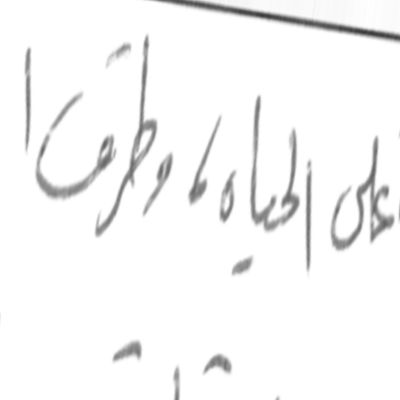 على الحياه ، وطرق ا